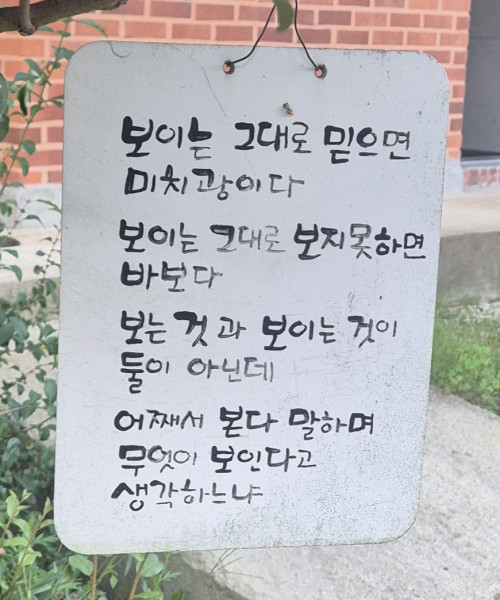 보이는 그대로 믿으면
미치광이다
보이는 그대로 보지못하면
바보다
보는 것과 보이는 것이
둘이 아닌데
어째서 본다 말하며
무엇이 보인다고
생각하느냐